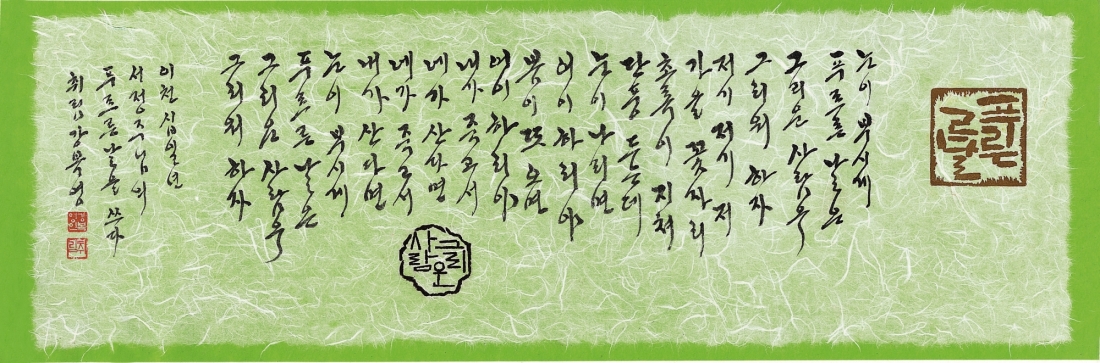 푸르른날
눈이 부시게
푸르른 날은
그리운 사람을
그리워 하자
저기 저기 저
가을 꽃자리
초록이 지쳐
단풍 드는데
눈이 나리면
어이 하리야
봄이 또 오면
어이 하리야
내가 죽고서
네가 산다면
네가 죽고서
내가 산다면
눈이 부시게
푸르른 날은
그리운 사람을
그리워 하자
그리운
사람
이천십일년
서정주님의
푸르른날을 쓰다
취림강복영